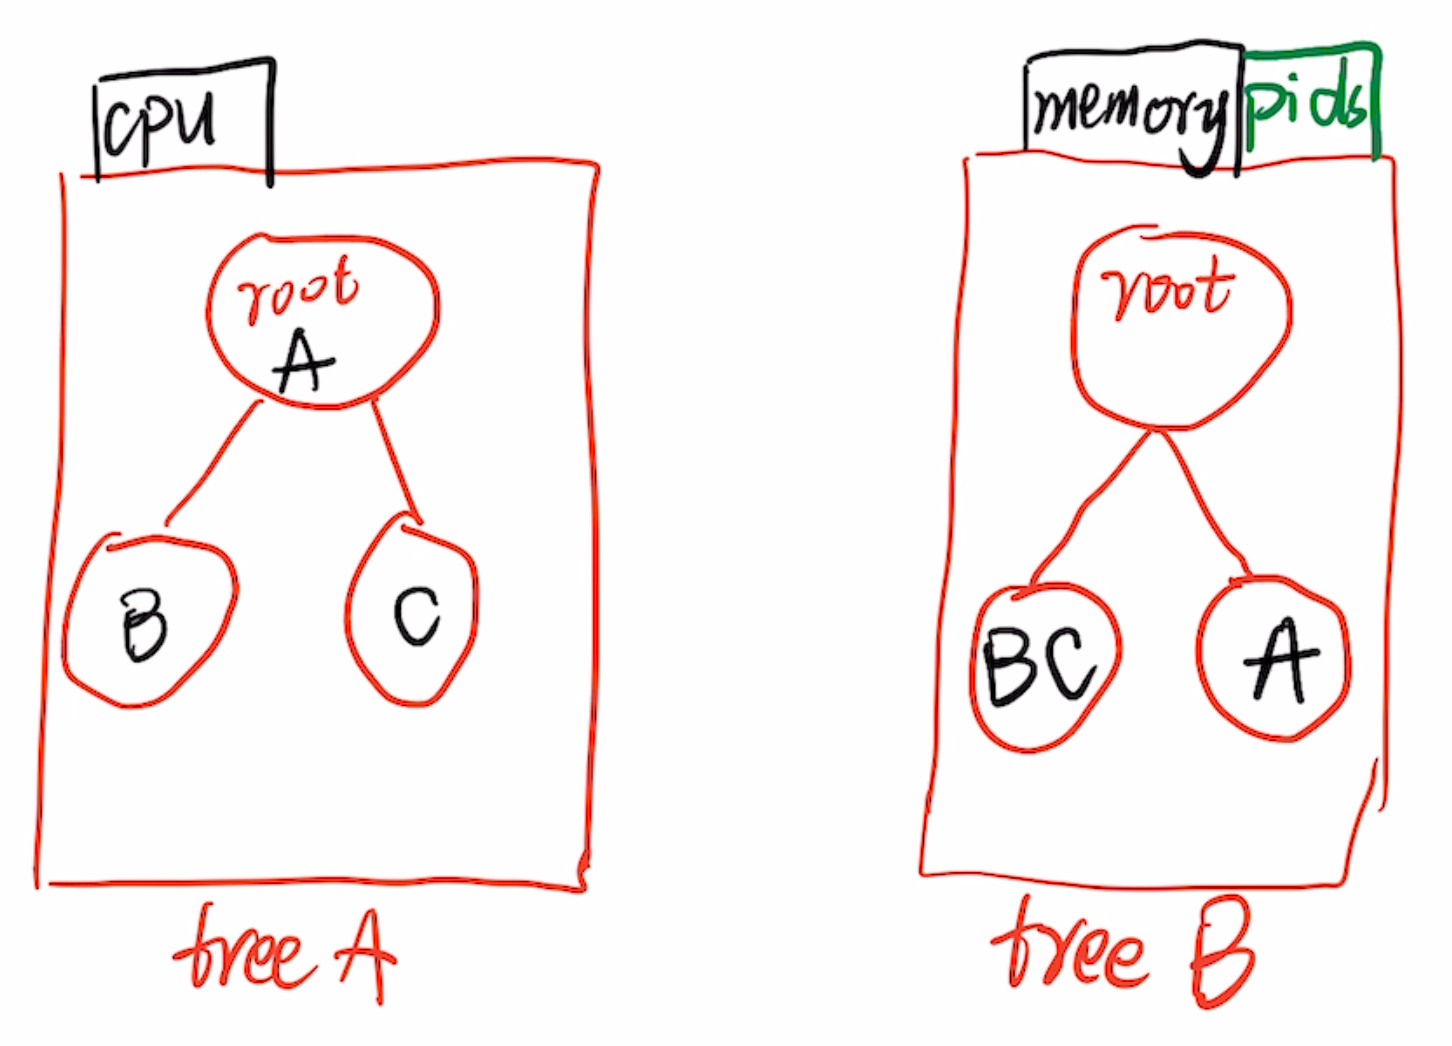 cpu
root
A
B
C
tree A
memory
pids
root
BC
A
tree B